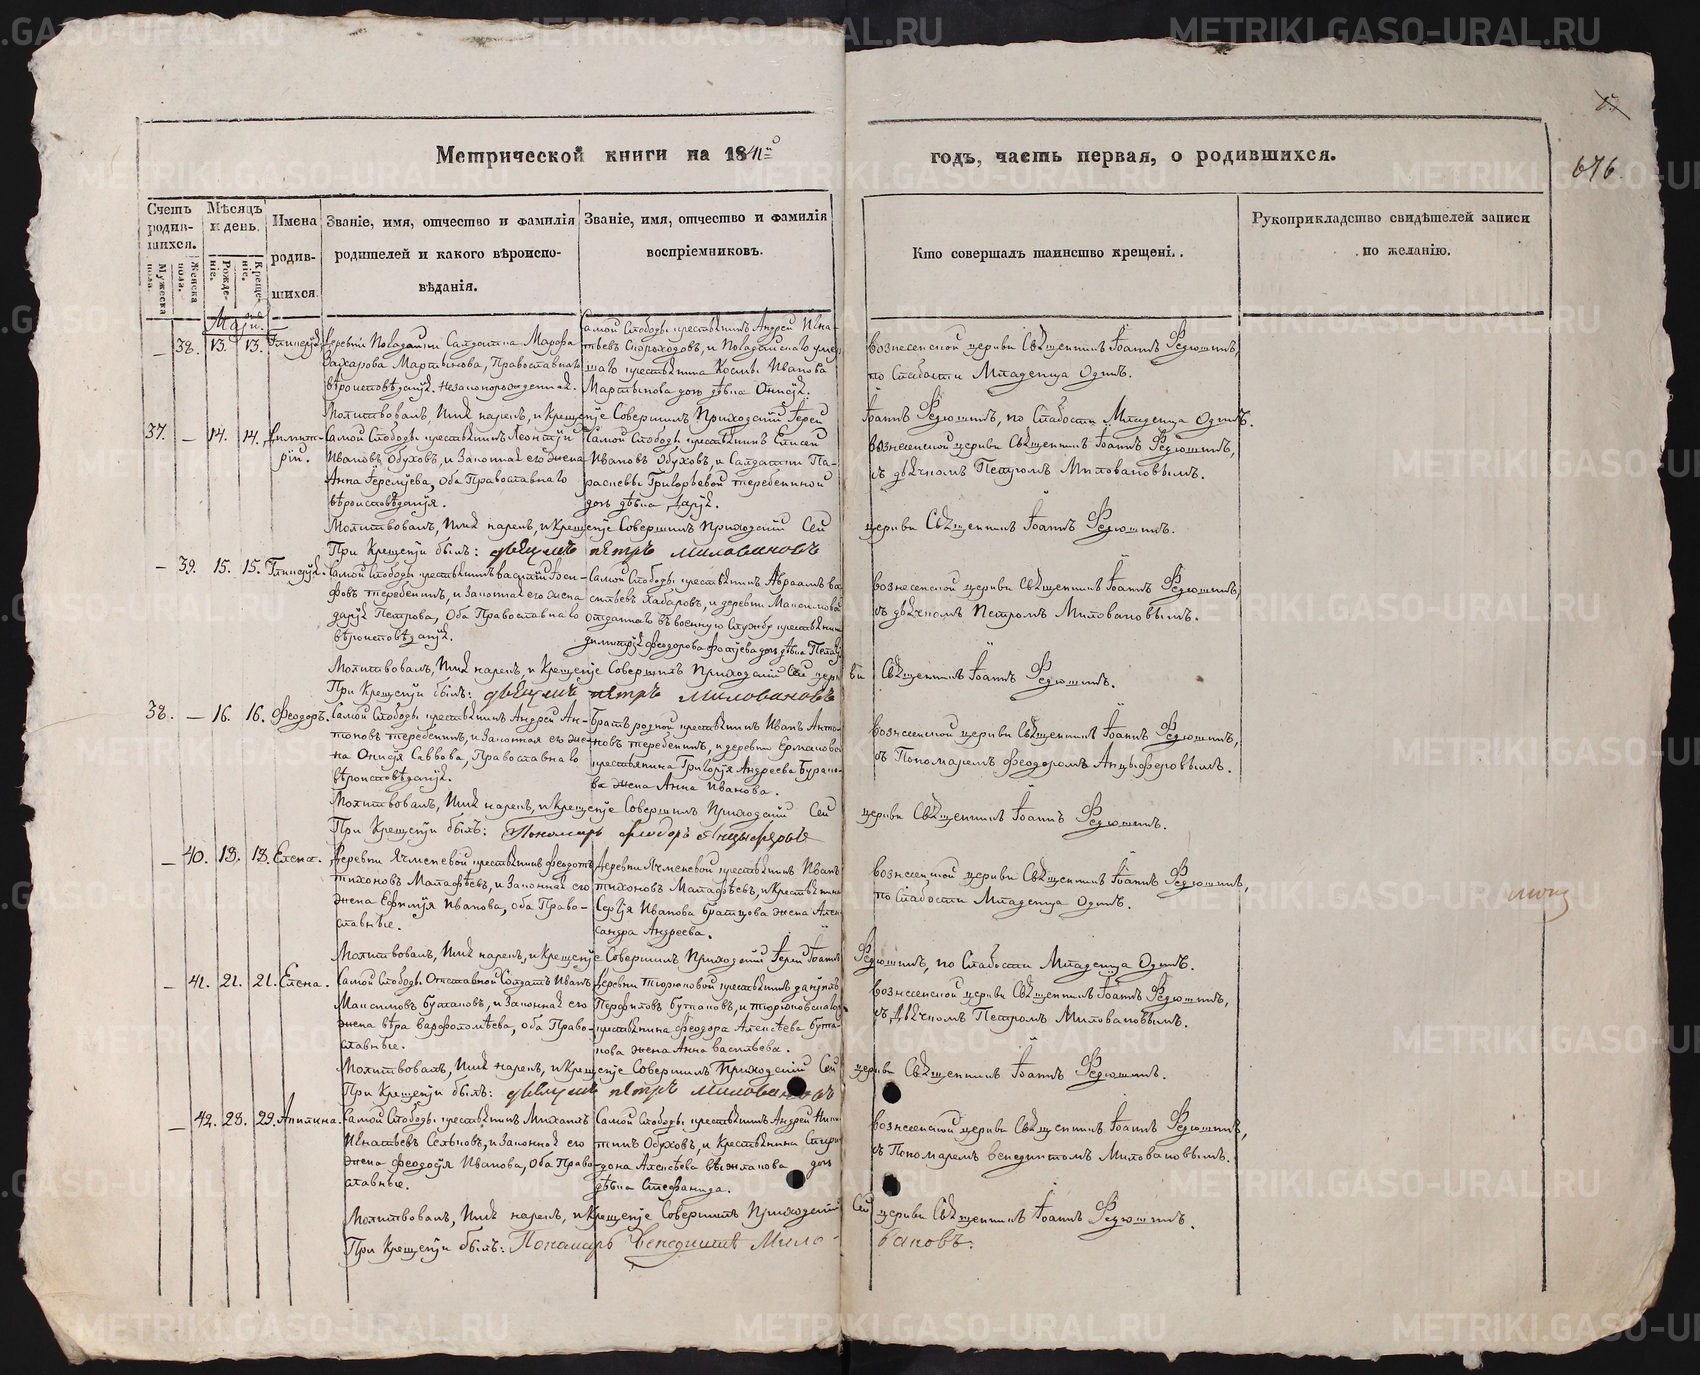 Метрической книги на 1841й
годъ, часть первая, о родившихся.
676.
Счетъ родившихся.
Мужеска пола.
Женска пола.
Мѣсяцъ и день.
Рожденіе.
Крещеніе.
Имена родившихся.
Званіе, имя, отчество и фамилія родителей и какого вѣроисповѣданія.
Званіе, имя, отчество и фамилія воспріемниковъ.
Кто совершалъ таинство крещенія.
Рукоприкладство свидѣтелей записи по желанію.
— 38. 13. 13.
Захарова Мартынова, Православнаго
вѣроисповѣданія. Незаконорожденная.
самой Слободы крестьянинъ Андрей Игна-
Мартынова дочь дѣвка
Вознесенской церкви Священникъ Іоаннъ Федюшинъ,
по Слабости Младенца Одинъ.
Молитвовалъ, Имя нарекъ, и Крещеніе Совершилъ Приходскій Іерей
Іоаннъ Федюшинъ, по Слабости Младенца Одинъ.
37. — 14. 14.
Самой Слободы крестьянинъ Леонтій
Ивановъ Обуховъ, и Законная его жена
Анна, Оба Православнаго
вѣроисповѣданія.
Самой Слободы крестьянинъ Елисей
Ивановъ Обуховъ, и Солдатки Па-
расковьи Григорьевой Теребениной
дочь дѣвка Дарія.
Вознесенской церкви Священникъ Іоаннъ Федюшинъ,
съ дьячкомъ Петромъ Миловановымъ.
Молитвовалъ, Имя нарекъ, и Крещеніе Совершилъ Приходскій Сей
церкви Священникъ Іоаннъ Федюшинъ.
При Крещеніи былъ: дьячекъ Петръ Миловановъ
— 39. 15. 15.
Самой Слободы крестьянинъ Василій Оси-
повъ Теребенинъ, и Законная его жена
Дарія Петрова, Оба Православнаго
вѣроисповѣданія.
Самой Слободы крестьянинъ Авраамъ Ва-
сильевъ Хабаровъ, и деревни
отданнаго въ военную Службу крестьяни-
Вознесенской церкви Священникъ Іоаннъ Федюшинъ,
съ дьячкомъ Петромъ Миловановымъ.
Молитвовалъ, Имя нарекъ, и Крещеніе Совершилъ Приходскій Сей церк-
ви Священникъ Іоаннъ Федюшинъ.
При Крещеніи былъ: дьячекъ Петръ Миловановъ
38. — 16. 16. Феодоръ.
Самой Слободы крестьянинъ Андрей Ан-
тоновъ Теребенинъ, и Законная его же-
на Онисія Саввова, Православнаго
вѣроисповѣданія.
Братъ родной крестьянинъ Иванъ Анто-
новъ Теребенинъ, и деревни Ермаковой
крестьянина Григорія Андреева
жена Анна Иванова.
Вознесенской церкви Священникъ Іоаннъ Федюшинъ,
съ Пономаремъ Феодоромъ Анцыферовымъ.
Молитвовалъ, Имя нарекъ, и Крещеніе Совершилъ Приходскій Сей
церкви Священникъ Іоаннъ Федюшинъ.
При Крещеніи былъ: Пономарь Феодоръ Анцыферовъ
— 40. 18. 18. Елена.
Деревни Ячменевой крестьянинъ Феодотъ
Тихоновъ, и Законная его
жена Евфимія Иванова, оба Право-
славные.
Деревни Ячменевой крестьянинъ Иванъ
Тихоновъ, и крестьянина
Сергія Иванова Братцова жена Алек-
сандра Андреева.
Вознесенской церкви Священникъ Іоаннъ Федюшинъ,
по Слабости Младенца Одинъ.
Молитвовалъ, Имя нарекъ, и Крещеніе Совершилъ Приходскій Іерей Іоаннъ
Федюшинъ, по Слабости Младенца Одинъ.
— 41. 21. 21. Елена.
Самой Слободы Отставной Солдатъ Иванъ
Максимовъ Бутаковъ, и Законная его
жена Вѣра Варфоломѣева, оба Право-
славные.
крестьянина Феодора Алексѣева Бута-
кова жена Анна Васильева.
Вознесенской церкви Священникъ Іоаннъ Федюшинъ,
съ Дьячкомъ Петромъ Миловановымъ.
Молитвовалъ, Имя нарекъ, и Крещеніе Совершилъ Приходскій Сей
церкви Священникъ Іоаннъ Федюшинъ.
При Крещеніи былъ: дьячекъ Петръ Миловановъ
— 42. 28. 29. Акилина.
Самой Слободы крестьянинъ Михаилъ
Игнатьевъ, и Законная его
жена Феодосія Иванова, Оба Право-
славные.
Самой Слободы крестьянинъ Андрей Ники-
тинъ Обуховъ, и Крестьянина Спири-
дона Алексѣева дочь
дѣвка Стефанида.
Вознесенской церкви Священникъ Іоаннъ Федюшинъ,
съ Пономаремъ Венедиктомъ Миловановымъ.
Молитвовалъ, Имя нарекъ, и Крещеніе Совершилъ Приходскій
Сей церкви Священникъ Іоаннъ Федюшинъ.
При Крещеніи былъ: Пономарь Венедиктъ Мило-
вановъ.
METRIKI.GASO-URAL.RU